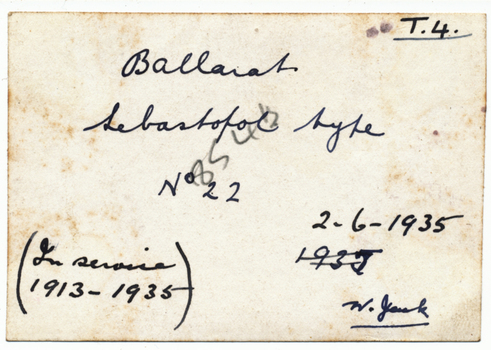 T.4.
Ballarat
Sebastopol type
No 22
2-6-1935
(In service
1913-1935)
W. Jack